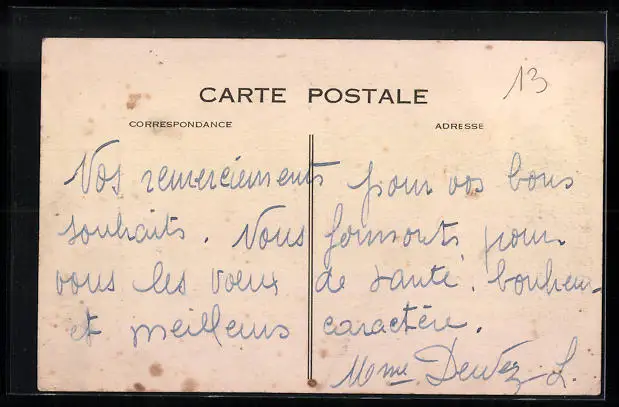 13
CARTE POSTALE
CORRESPONDANCE
ADRESSE
Nos remerciements pour vos bons
souhaits. Nous formons pour
vous les voeux de santé. bonheur
et meilleurs caractère.
Mme Dewez L.